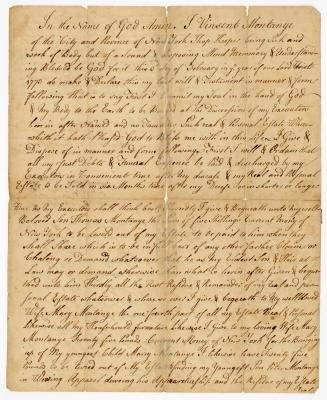 In the Name of God Amen. I Vinsent Montanye
of the City and Province of New York Shop Keeper being Sick and
week of Body but of a Sound & Disposeing Mind Memmory & Understan-
ing Blessed be God for it this Day of February in the year of our Lord Christ
177 do make & Declare this my last Will & Testament in manner & form
following that is to say First I Commit my Soul in the hand of God
& My Body to the Earth to be Buried at the Discression of my Executors
herein after Named and as Towching Such real & Personal Estate Wheire
whith it hath Pleasd God to Bless me with in this Life, I Give &
Dispose of in manner and form following, First I will & Ordain that
all my Just Debts & Funeral Expences be Paid & discharged by my
Executors in Convenient time after My deceass & my Real and Personal
Estate to be Sold in Six Months time after my Decess Soon shorter or longer
time as my Executors shall think best Secondly I give & Bequeath unto my well
Beloved Son Thomas Montanye the Sum of five Shillings Current Money
New York to be Leveed out of my Estate to be paid to him when they
shall Share which is to be in full Barr of any other further Claime or
Chaleng or Demand whatsoever that he as my Eldest Son & Heir at
Law may or demand, otherwise than what is herein after Given & bequea
thed unto him thirdly all the Rest Residue & Remainder of my real and per-
sonal Estate whatsoever & wheresoever I give & bequeath to my well beloved
Wife Mary Montanye the one fourth part of all my Estate Real & Personal
Likewise all my Household furniture Likewise I Give to my Loving Wife Mary
Montanye Seventy five Pounds Current Money of New York for the Bringing
up of My youngest Child Mary Montanye I Likewise Leave Seventy five
Pounds to be Leveed out of My Estate for finding my Youngest Son Peter Montanye
in Wering Apparel dureing his Apprenticeship and the Residue of my Estate